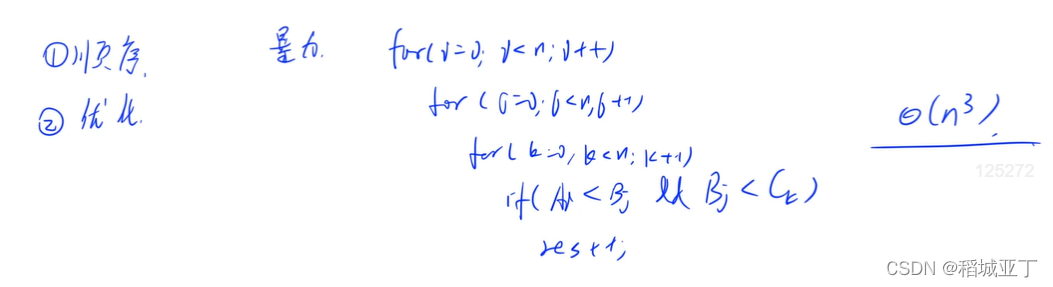 ①顺序.
② 优化.
暴力.
for(i=0; i<n; i++)
for(j=0; j<n; j++)
for(k=0, k<n; k++)
if(Ai < Bj && Bj < Ck)
res++;
O(n³).
125272
CSDN @稻城亚丁